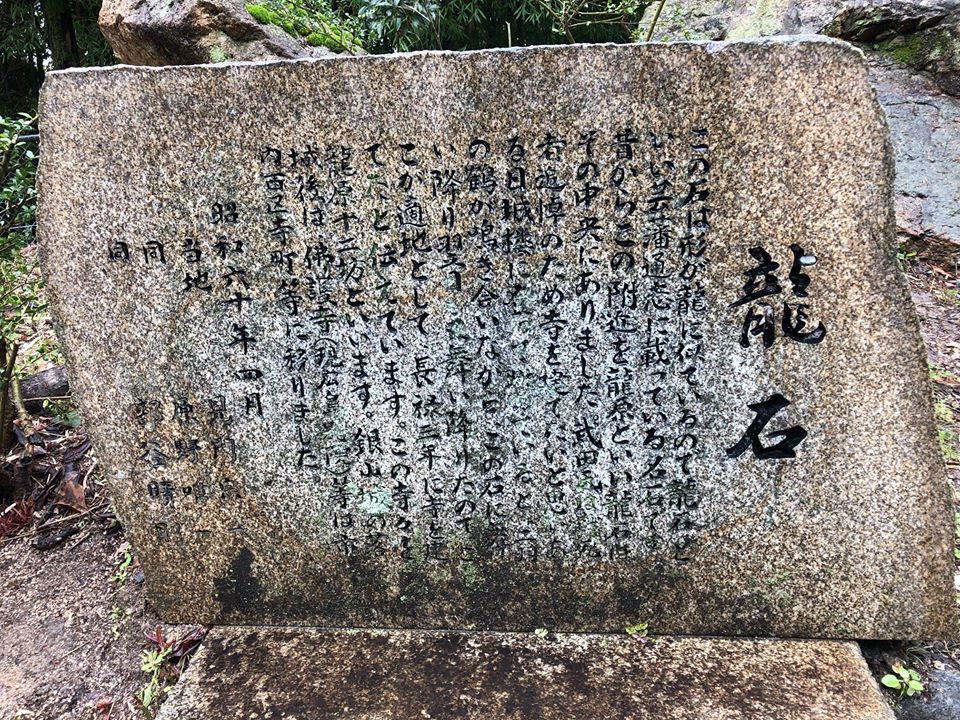 龍石
この石は形が龍に似ているので龍石と
いい芸藩通志に載っている名石です
昔からこの附近を龍原といい龍石は
その中央にありました武田氏は戦死
者追悼のため寺を建てたいと思
る日城楼に いると二羽
の鶴が鳴き合いながらこの石に舞
い降り 舞い降りたのでこ
こが適地として長禄二年に寺を建
てたと伝えています。この寺々を
龍原十二坊といいます。銀山城の落
城後は佛護寺 等は市
内百足寺町等に移りました
昭和六十年四月
当地
同 原野 一
同